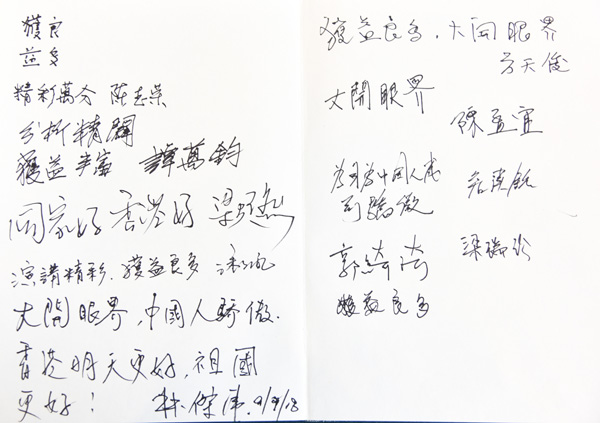 獲良
益多
精彩萬分 陈志荣
分析精闢
獲益丰富 譚萬鈞
国家好 香港好
演講精彩、獲益良多
大開眼界,中國人驕傲.
香港明天更好,祖國
更好! 林傑偉 9/9/18
獲益良多,大開眼界
方天俊
大開眼界
陳孟宜
為身為中国人感
到驕傲
郭綺湾
梁瑞珍
獲益良多